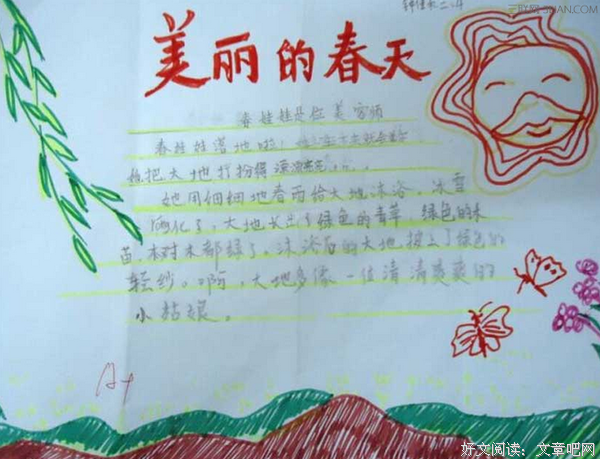 三联网 3LIAN.COM
美丽的春天
春娃娃是位美容师
春娃娃落地啦！
把大地打扮得漂漂亮亮……
她用细细地春雨给大地沐浴，冰雪
融化了，大地长出了绿色的青草，绿色的禾
苗，树木都绿了，沐浴后的大地披上了绿色的
轻纱。啊，大地多像一位清清爽爽的
小姑娘。
A+
好文阅读：文章吧网